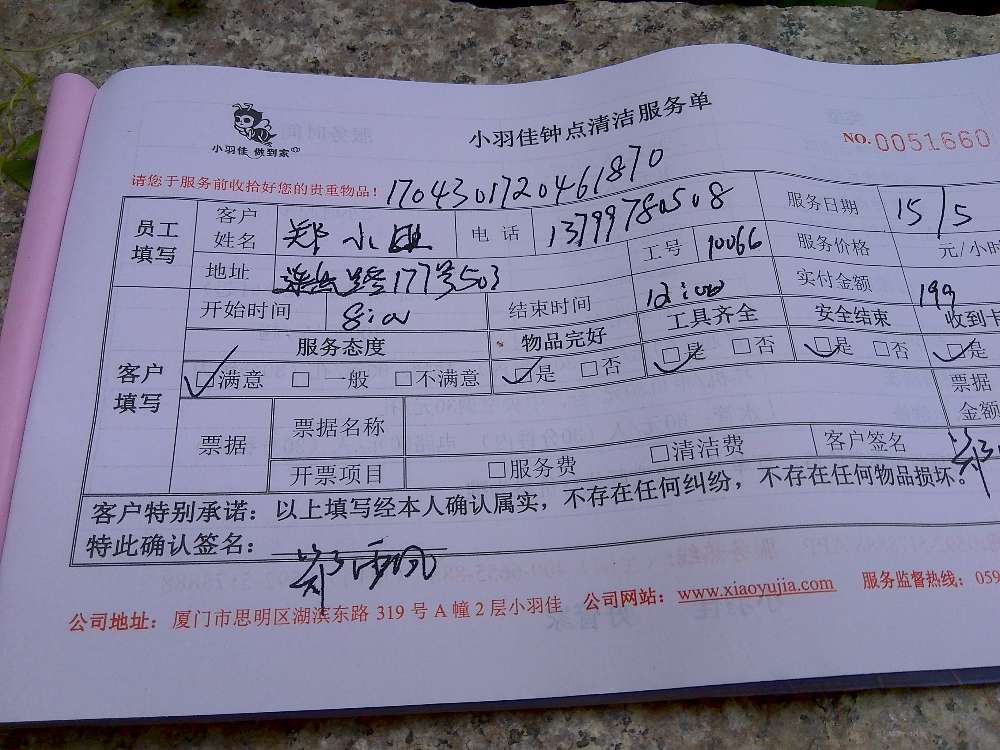 小羽佳钟点清洁服务单
小羽佳 做到家
NO.0051660
请您于服务前收拾好您的贵重物品！ 1704301720461870
员工填写 客户姓名 郑小 电话 13799780508 服务日期 15/5
地址 177号503 工号 10066 服务价格 元/小时
客户填写 开始时间 8:00 结束时间 12:00 实付金额 199
服务态度 物品完好 工具齐全 安全结束 收到卡
□满意 □一般 □不满意 □是 □否 □是 □否 □是 □否 □是
票据 票据名称 票据金额
开票项目 □服务费 □清洁费 客户签名 郑
客户特别承诺：以上填写经本人确认属实，不存在任何纠纷，不存在任何物品损坏。
特此确认签名： 郑
公司地址：厦门市思明区湖滨东路 319 号 A 幢 2 层小羽佳 公司网站：www.xiaoyujia.com 服务监督热线：059